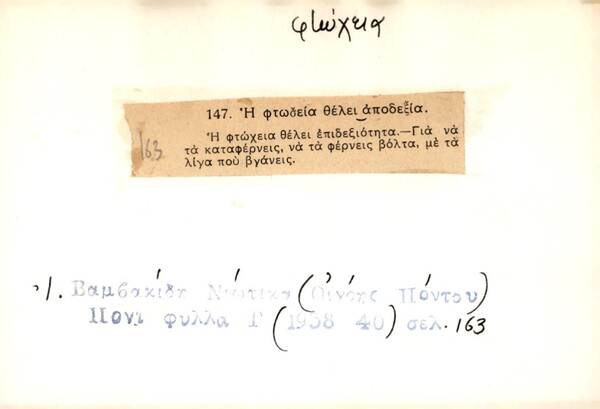 φτώχεια
147. Ἡ φτωδεία θέλει ἀποδεξία.
Ἡ φτώχεια θέλει ἐπιδεξιότητα.—Γιὰ νὰ
τὰ καταφέρνεις, νὰ τὰ φέρνεις βόλτα, μὲ τὰ
λίγα ποὺ βγάνεις.
163
Ι. Βαμβακίδη Νιώτικα (Οἰνόης Πόντου)
Ποντ φυλλα Γ (1938 40) σελ. 163